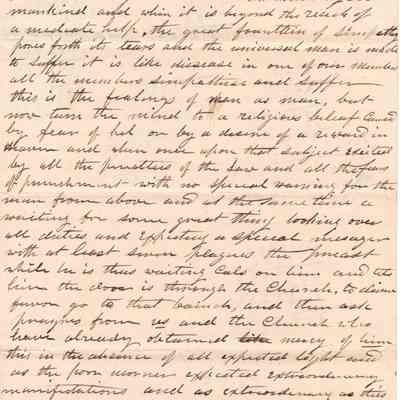 mankind and when it is beyond the reach of
a mediate help, the great fountin of simpathy
pores forth its tears and the universal man is made
to suffer it is like disease in one of our members
all the members simpathise and suffer
this is the fealings of man as man, but
now turn the mind to a religious beleaf caused
by fear of hel or by a desire of a reward in
Heaven and when once upon that subject excited
by all the penelties of the Law and all the fears
of punishment with no special warning for the
man from above and at the same time a
waiting for some great thing looking over
all duties and Expecting a special mesenger
with at least seven
while he is thus waiting cals on him and tels
him the door is through the Church, to divine
favor go to that bainch, and then ask
prayers from us and the Church who
have already obtained mercy of him
this in the absence of all expected light and
as the poor morner expected extraordinary
manifestations and as extraordinary as this